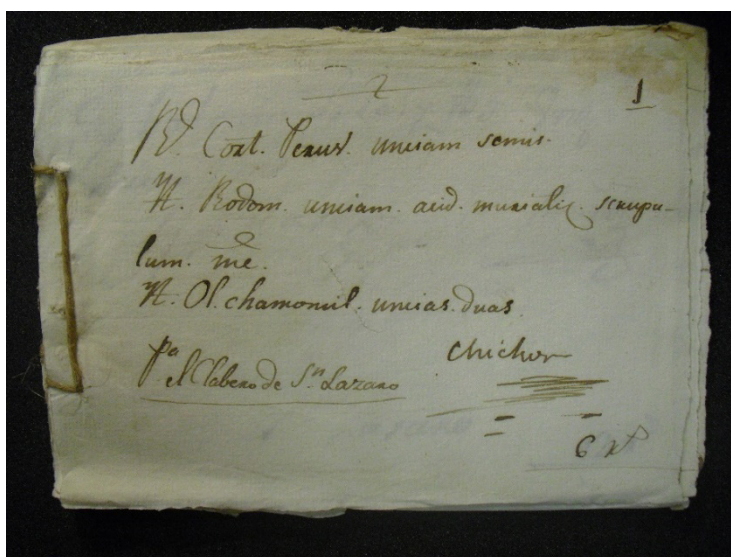 1
Rx. Cort. Peruv. unciam semis.
Rodom. unciam. acid. muriatic. scrupu-
lum. me.
Ol. chamomil. uncias. duas.
Pa el Clabero de Sn. Lazaro
Chichon
6